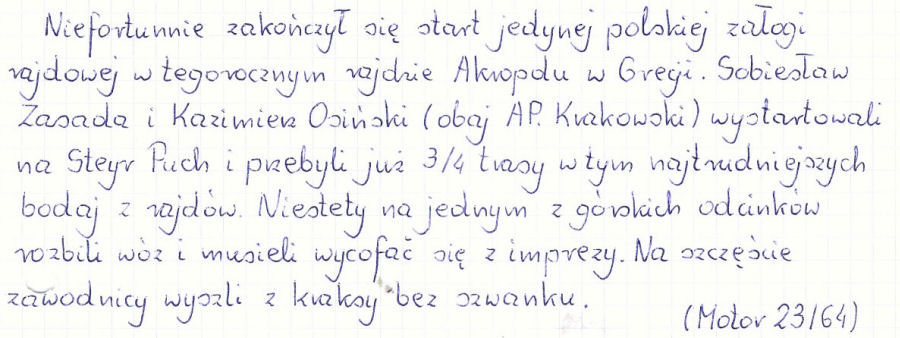 Niefortunnie zakończył się start jedynej polskiej załogi
rajdowej w tegorocznym rajdzie Akropolu w Grecji. Sobiesław
Zasada i Kazimierz Osiński (obaj AP. Krakowski) wystartowali
na Steyr Puch i przebyli już 3/4 trasy w tym najtrudniejszych
bodaj z rajdów. Niestety na jednym z górskich odcinków
rozbili wóz i musieli wycofać się z imprezy. Na szczęście
zawodnicy wyszli z kraksy bez szwanku.
(Motor 23/64)